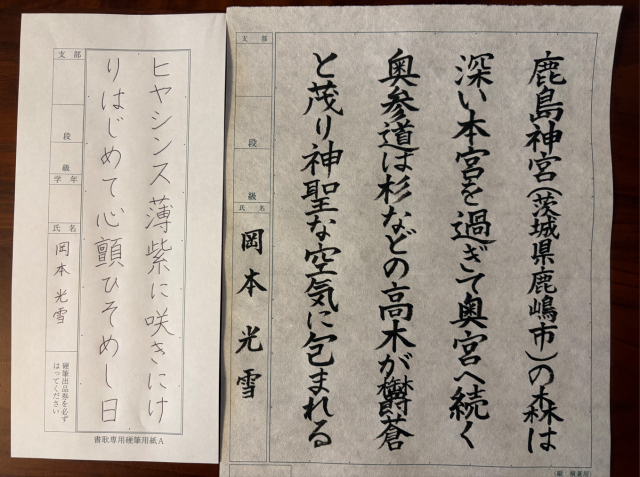 鹿島神宮（茨城県鹿嶋市）の森は
深い本宮を過ぎて奥宮へ続く
奥参道は杉などの高木が欝蒼
と茂り神聖な空気に包まれる
支部
段
級
氏名
岡本光雪
ヒヤシンス薄紫に咲きにけ
りはじめて心顫ひそめし日
支部
段
級
学年
氏名
岡本光雪
硬筆出品券を必ず
はってください
書耿専用硬筆用紙A